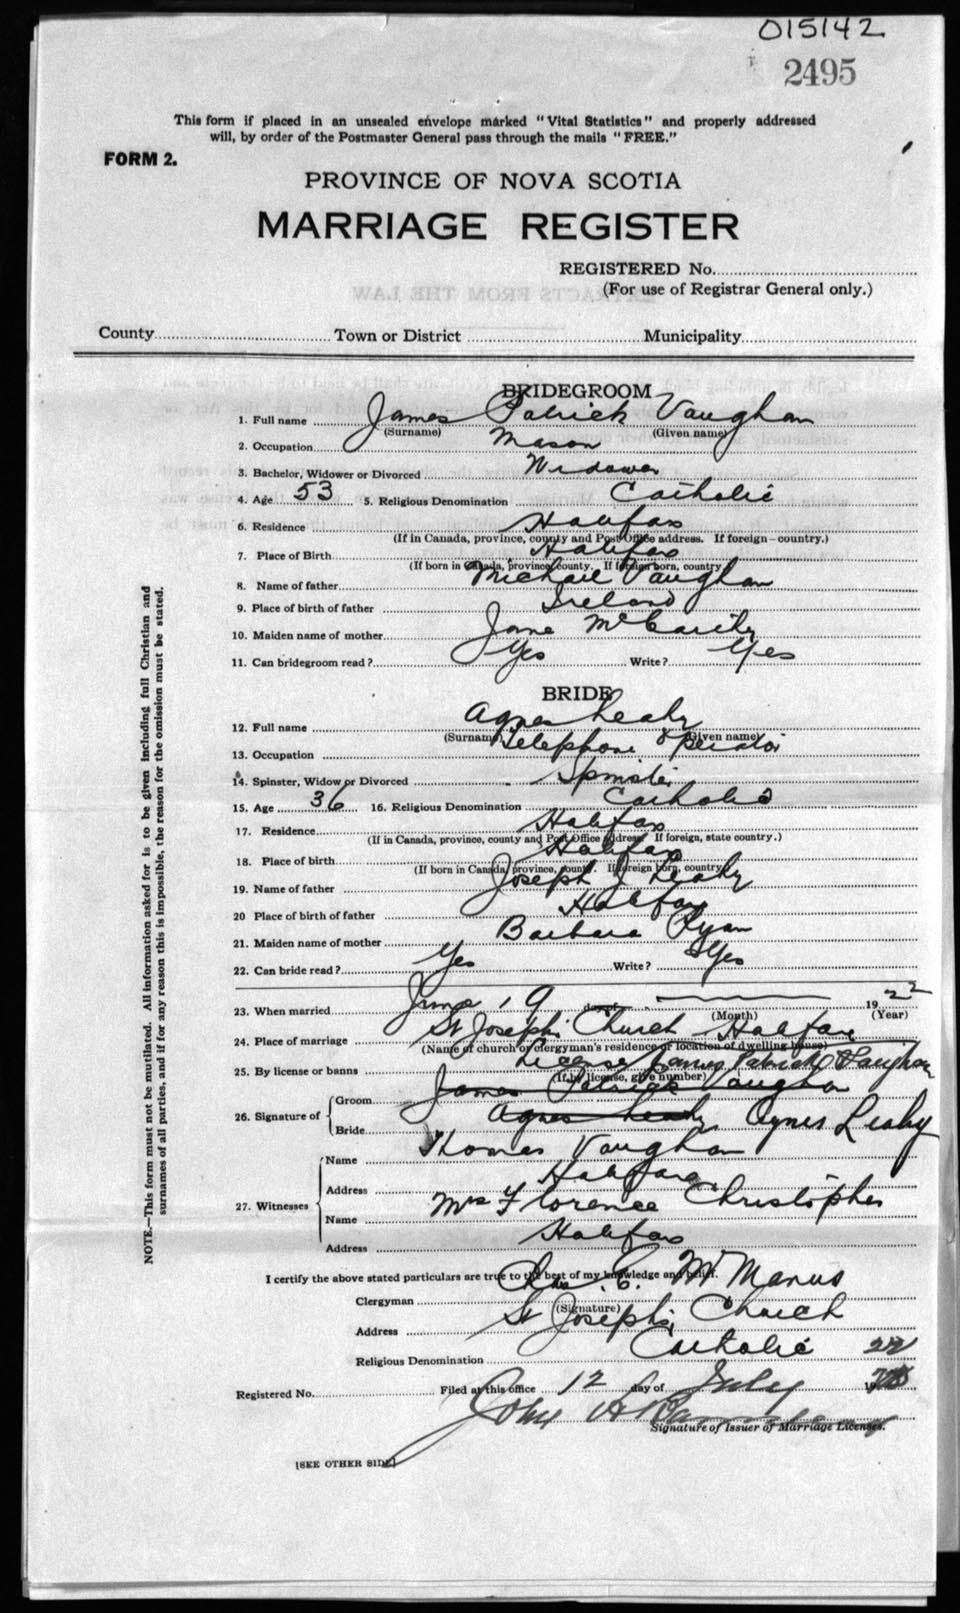 015142
2495
This form if placed in an unsealed envelope marked "Vital Statistics" and properly addressed
will, by order of the Postmaster General pass through the mails "FREE."
FORM 2.
PROVINCE OF NOVA SCOTIA
MARRIAGE REGISTER
REGISTERED No.
(For use of Registrar General only.)
EXTRACTS FROM THE LAW
County Town or District Municipality
BRIDEGROOM
1. Full name James Patrick Vaughan
(Surname) (Given name)
2. Occupation Mason
3. Bachelor, Widower or Divorced Widower
4. Age 53 5. Religious Denomination Catholic
6. Residence Halifax
(If in Canada, province, county and Post Office address. If foreign—country.)
7. Place of Birth Halifax
(If born in Canada, province, county. If foreign born, country)
8. Name of father Michael Vaughan
9. Place of birth of father Ireland
10. Maiden name of mother Jane McCarthy
11. Can bridegroom read? Yes Write? Yes
BRIDE
12. Full name Agnes Leahy
(Surname) (Given name)
13. Occupation Telephone Operator
14. Spinster, Widow or Divorced Spinster
15. Age 36 16. Religious Denomination Catholic
17. Residence Halifax
(If in Canada, province, county and Post Office address. If foreign, state country.)
18. Place of birth Halifax
(If born in Canada, province, county. If foreign born, country)
19. Name of father Joseph J Leahy
20 Place of birth of father Halifax
21. Maiden name of mother Barbara Ryan
22. Can bride read? Yes Write? Yes
23. When married June 19 day of 1922
(Month) (Year)
24. Place of marriage St Joseph's Church Halifax
(Name of church or clergyman's residence or location of dwelling house)
25. By license or banns License James Patrick Vaughan
(If by license, give number)
26. Signature of Groom James Patrick Vaughan
Bride Agnes Leahy Agnes Leahy
27. Witnesses
Name Thomas Vaughan
Address Halifax
Name Mrs Florence Christopher
Address Halifax
I certify the above stated particulars are true to the best of my knowledge and belief.
Clergyman Chas. E. McManus
(Signature)
Address St Joseph's Church
Religious Denomination Catholic
Registered No. Filed at this office 12 day of July 22
John A
Signature of Issuer of Marriage Licenses.
[SEE OTHER SIDE]
NOTE.—This form must not be mutilated. All information asked for is to be given including full Christian and
surnames of all parties, and if for any reason this is impossible, the reason for the omission must be stated.